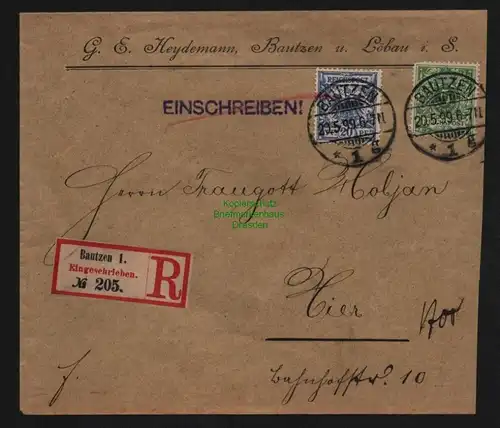 G. E. Heydemann, Bautzen u. Löbau i. S.
REICHSPOST
EINSCHREIBEN!
BAUTZEN
20.5.99.6-7N
* 1 g
BAUTZEN
20.5.99.6-7N
* 1 g
Herrn Traugott Moljan
Kopierschutz
Briefmarkenhaus
Dresden
Bautzen 1.
Eingeschrieben.
№ 205.
R
Hier
f.
Bahnhofstr. 10